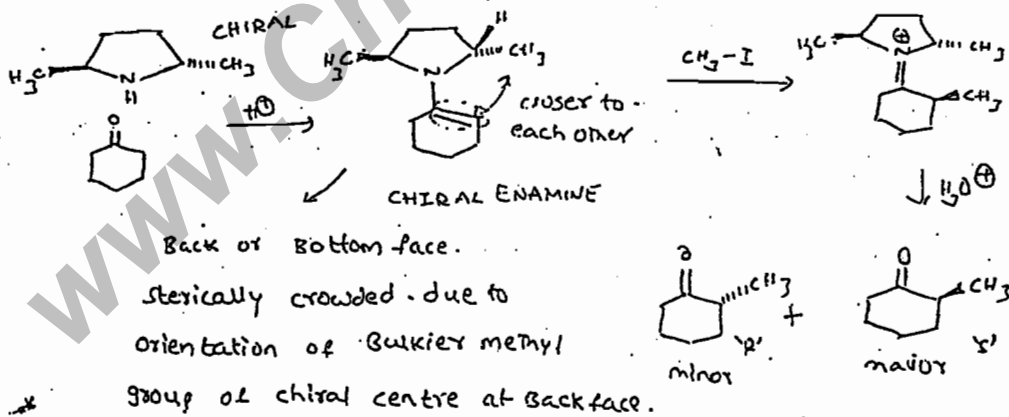 CHIRAL
H₃C
CH₃
N
H
O
H⊕
H
H₃C
CH₃
N
closer to
each other
CHIRAL ENAMINE
CH₃-I
H₃C
⊕
N
CH₃
CH₃
H₃O⊕
Back or Bottom face.
sterically crowded. due to
orientation of Bulkier methyl
group of chiral centre at Back face.
O
CH₃
'R'
minor
+
O
CH₃
'S'
major
www.Ch